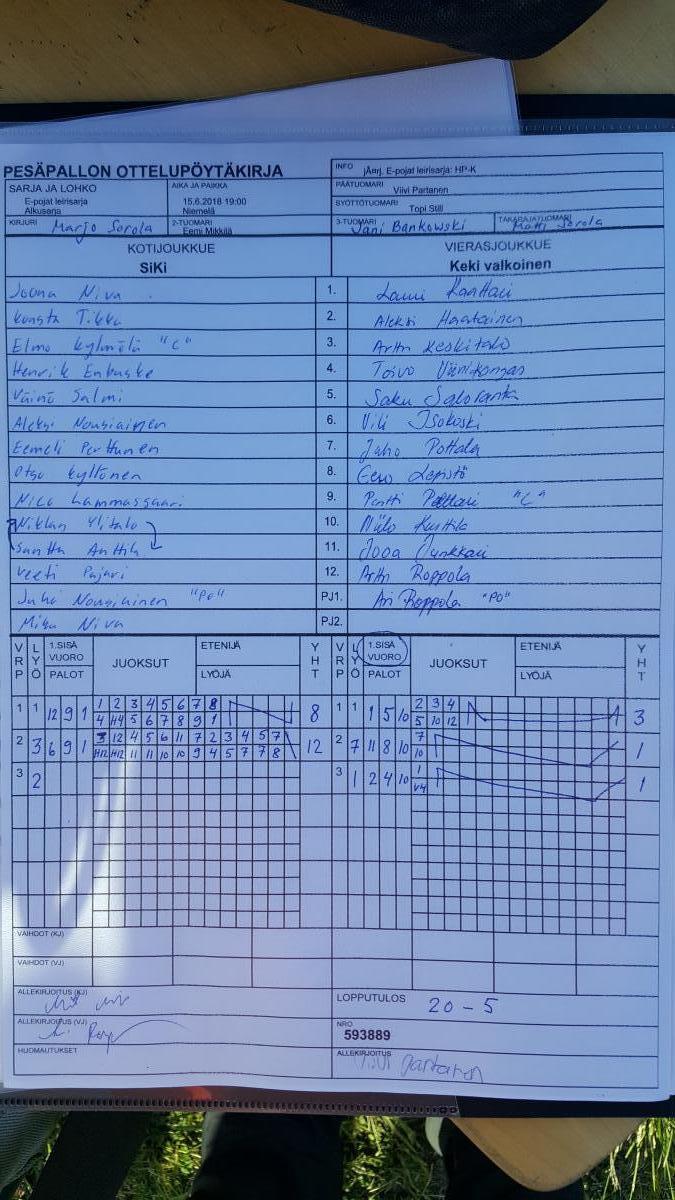 PESÄPALLON OTTELUPÖYTÄKIRJA
INFO jÄrrj. E-pojat leirisarja: HP-K
SARJA JA LOHKO
E-pojat leirisarja
Alkusarja
AIKA JA PAIKKA
15.6.2018 19:00
Niemelä
PÄÄTUOMARI Viivi Partanen
SYÖTTÖTUOMARI Topi Still
KIRJURI Marjo Sorola
2-TUOMARI Eemi Mikkilä
3-TUOMARI Jani Bankowski
TAKARAJATUOMARI Matti Sorola
KOTIJOUKKUE
SiKi
VIERASJOUKKUE
Keki valkoinen
Joona Niva 1. Lauri Kanttari
Konsta Tikka 2. Aleksi Haatainen
Elmo Kylmälä "C" 3. Artt Keskitalo
Henrik Enbuske 4. Toivo Viinikangas
Väinö Salmi 5. Saku Saloranta
Aleksi Nousiainen 6. Vili Isokoski
Eemeli Perttunen 7. Juho Pottala
Otso Kyllönen 8. Eero Lepistö
Nico Lammassaari 9. Pertti "C"
Niklas Ylitalo 10. Niilo Kurttila
Santtu Anttila 11. Jooa Junkkari
Veeti Pajari 12. Artt Roppola
Juha Nousiainen "PO" PJ1. Ari Roppola "PO"
Mika Niva PJ2.
VRP LYÖ 1.SISÄ VUORO PALOT JUOKSUT ETENIJÄ LYÖJÄ YHT VRP LYÖ 1.SISÄ VUORO PALOT JUOKSUT ETENIJÄ LYÖJÄ YHT
1 1 12 9 1 1 2 3 4 5 6 7 8 8 1 1 1 5 10 2 3 4 3
4 H4 5 6 7 8 9 1 5 10 12
2 3 6 9 1 3 12 4 5 6 11 7 2 3 4 5 7 12 2 7 11 8 10 7 1
H12 H12 11 11 10 10 9 4 5 7 7 8 10
3 2 3 1 2 4 10 1 1
V4
VAIHDOT (KJ)
VAIHDOT (VJ)
ALLEKIRJOITUS (KJ)
LOPPUTULOS 20-5
ALLEKIRJOITUS (VJ)
NRO
593889
HUOMAUTUKSET
ALLEKIRJOITUS Viivi Partanen